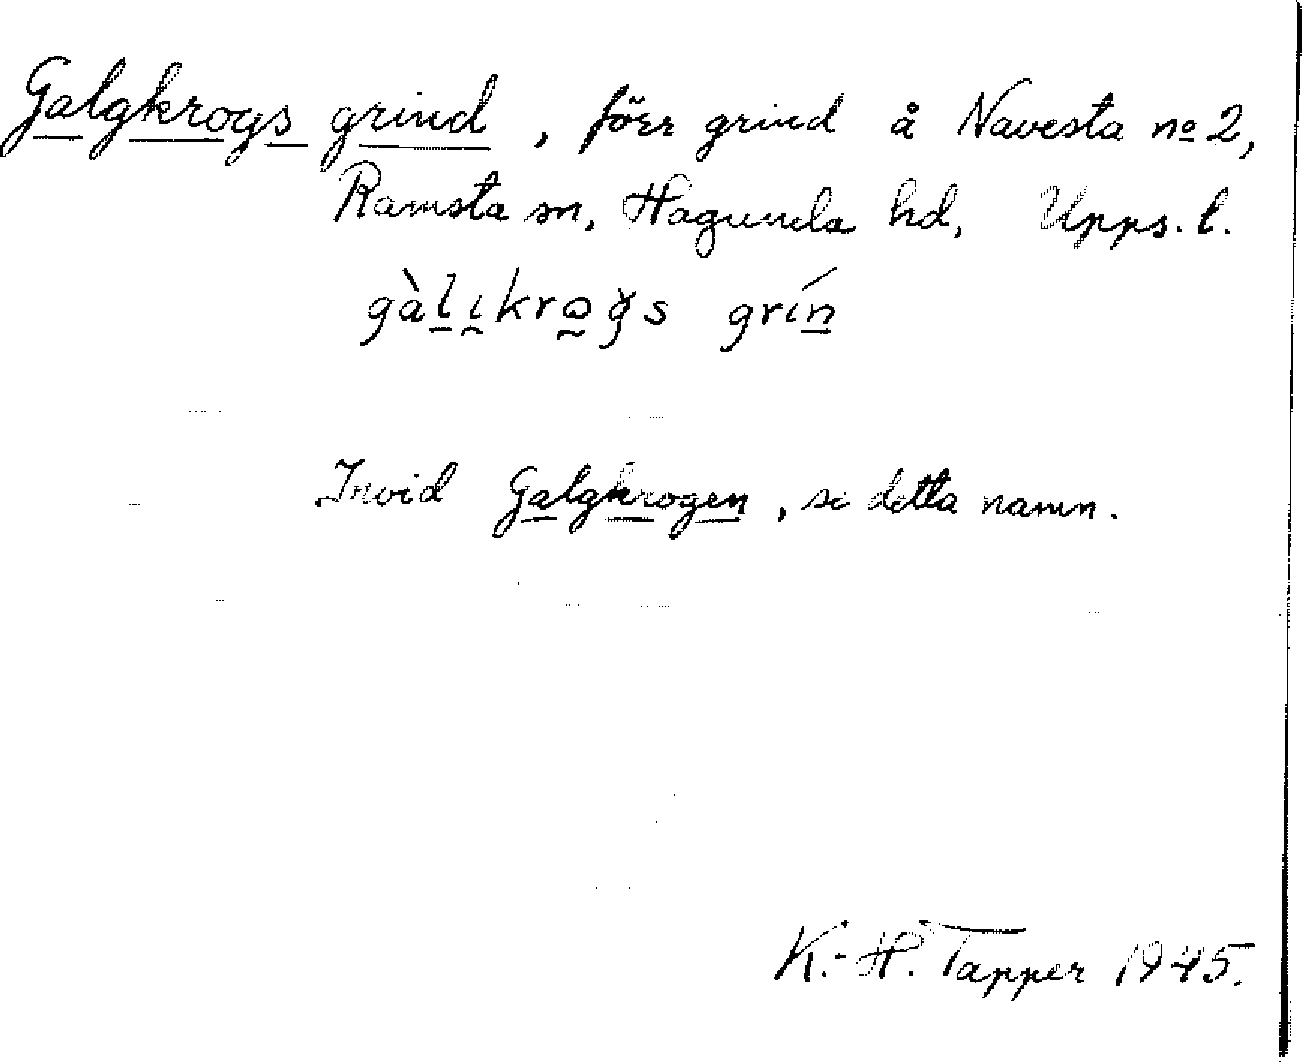 Galgkrogs grind, förr grind å Navesta no 2,
Ramsta sn, Hagunda hd, Upps. l.
gàl̲ı̰kro̰g̮s grín̲
Invid Galgkrogen, se detta namn.
K.-H. Tapper 1945.